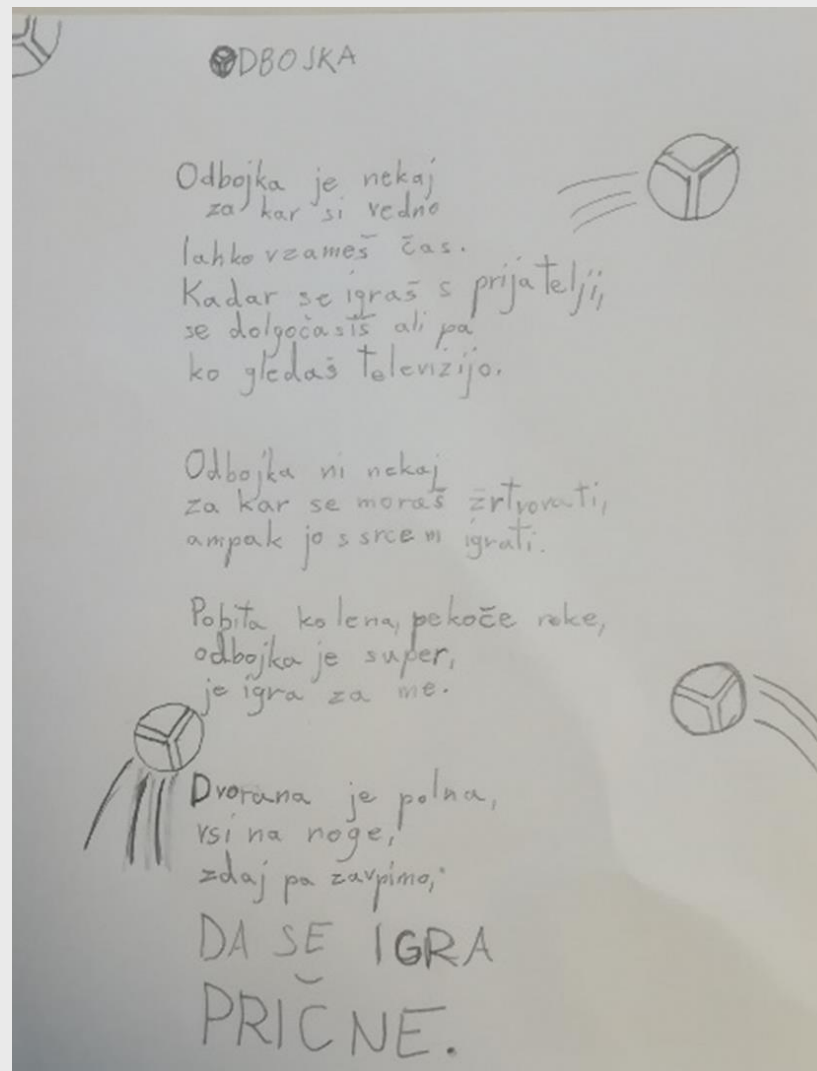 ODBOJKA
Odbojka je nekaj
za kar si vedno
lahko vzameš čas.
Kadar se igraš s prijatelji,
se dolgočasiš ali pa
ko gledaš televizijo.
Odbojka ni nekaj
za kar se moraš žrtvovati,
ampak jo s srcem igrati.
Pobita kolena, pekoče roke,
odbojka je super,
je igra za me.
Dvorana je polna,
vsi na noge,
zdaj pa zavpimo,
DA SE IGRA
PRIČNE.